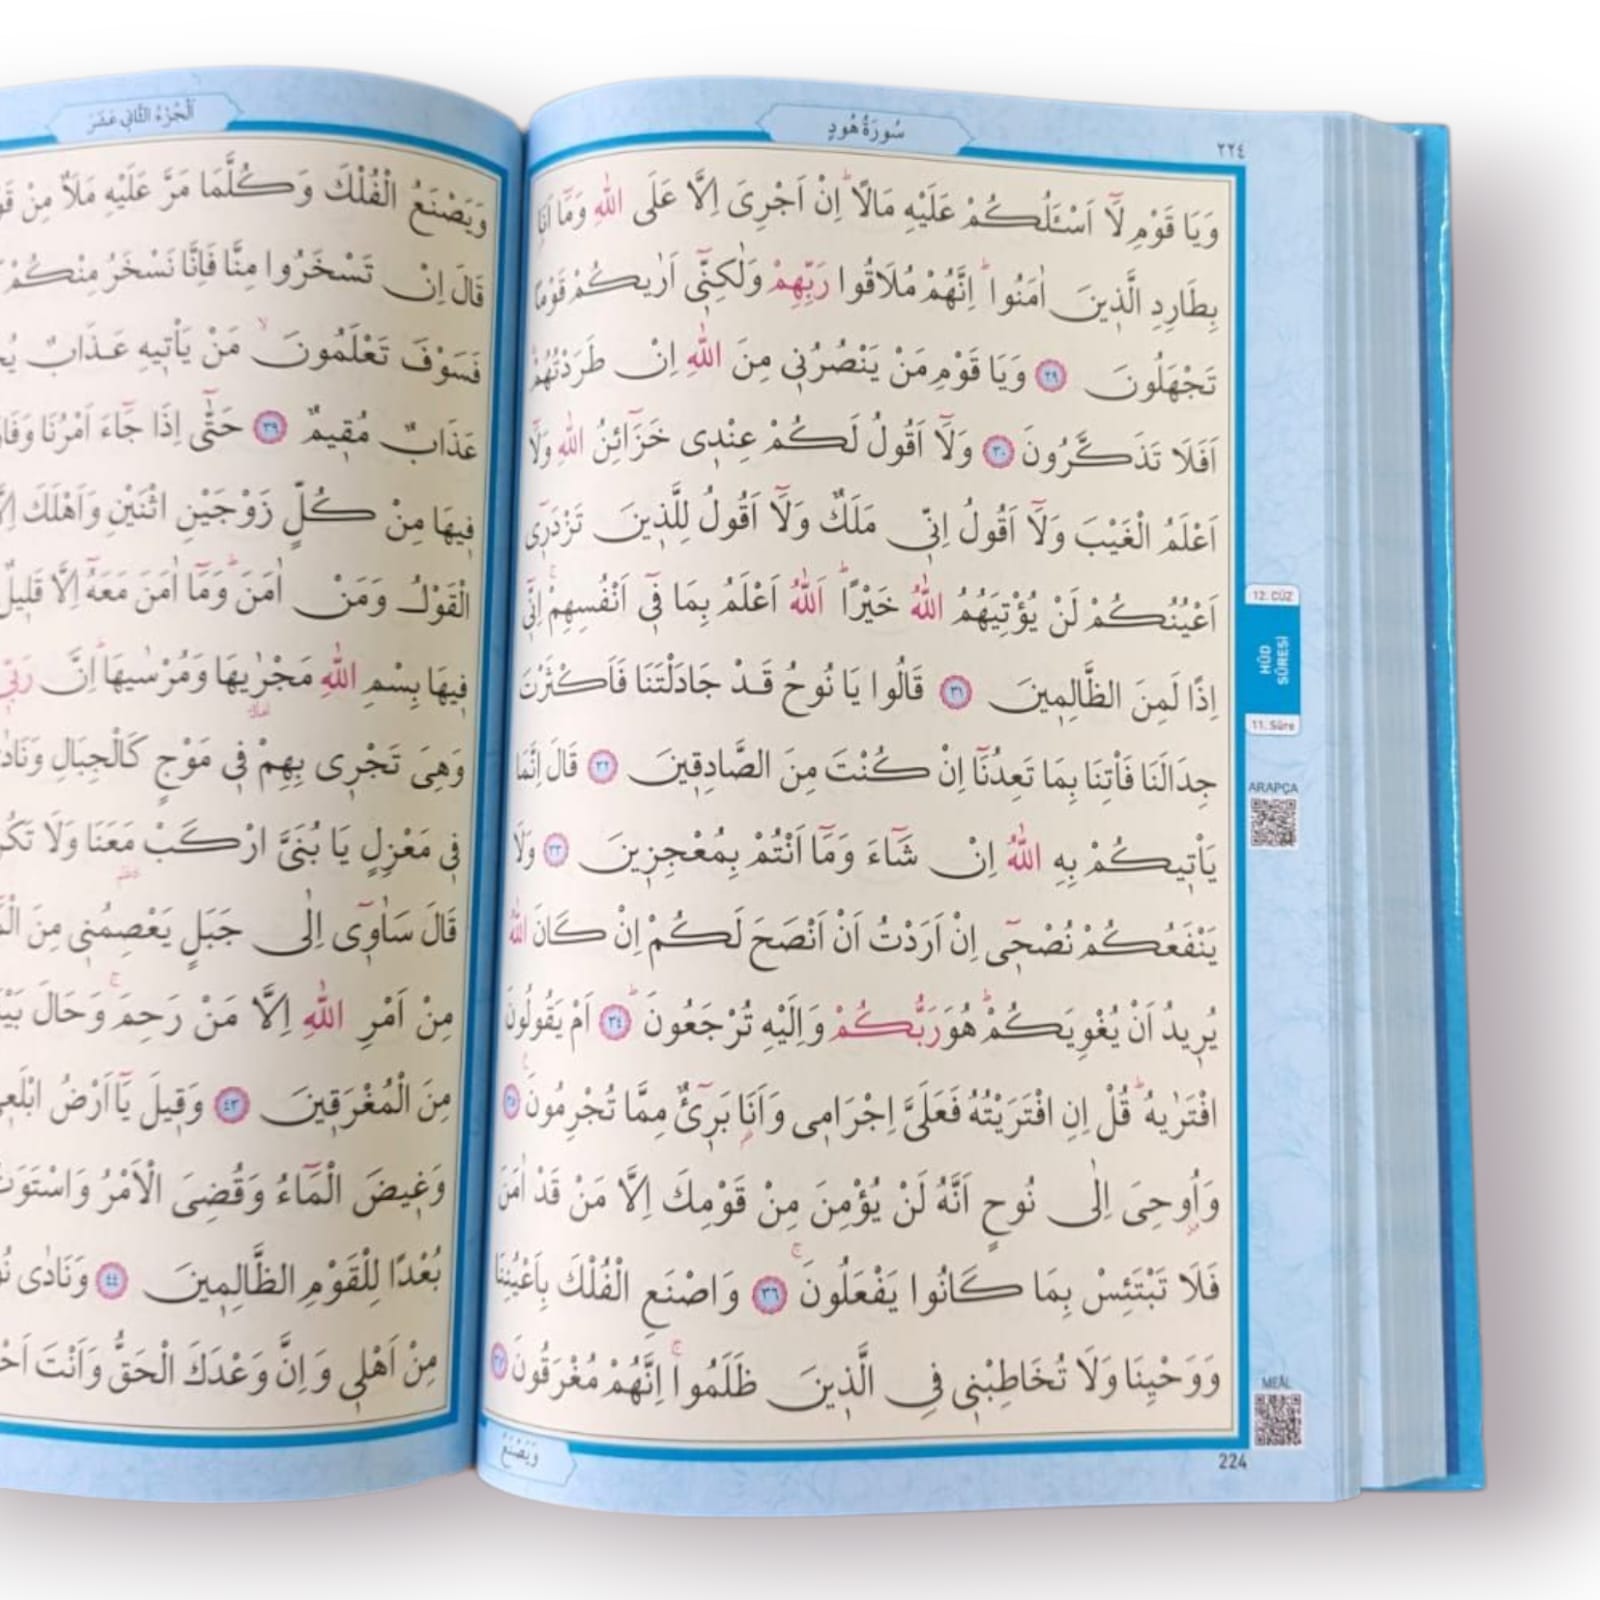 سُورَةُ هُودٍ
٢٢٤
وَيَا قَوْمِ لَٓا اَسْـَٔلُكُمْ عَلَيْهِ مَالًاۜ اِنْ اَجْرِيَ اِلَّا عَلَى اللّٰهِ وَمَٓا اَنَا۬
بِطَارِدِ الَّذ۪ينَ اٰمَنُواۜ اِنَّهُمْ مُلَاقُوا رَبِّهِمْ وَلٰكِنّ۪ٓي اَرٰيكُمْ قَوْمًا
تَجْهَلُونَ ﴿٢٩﴾ وَيَا قَوْمِ مَنْ يَنْصُرُن۪ي مِنَ اللّٰهِ اِنْ طَرَدْتُهُمْۜ
اَفَلَا تَذَكَّرُونَ ﴿٣٠﴾ وَلَٓا اَقُولُ لَكُمْ عِنْد۪ي خَزَٓائِنُ اللّٰهِ وَلَٓا
اَعْلَمُ الْغَيْبَ وَلَٓا اَقُولُ اِنّ۪ي مَلَكٌ وَلَٓا اَقُولُ لِلَّذ۪ينَ تَزْدَر۪ٓي
اَعْيُنُكُمْ لَنْ يُؤْتِيَهُمُ اللّٰهُ خَيْرًاۜ اَللّٰهُ اَعْلَمُ بِمَا ف۪ٓي اَنْفُسِهِمْۚ اِنّ۪ٓي
اِذًا لَمِنَ الظَّالِم۪ينَ ﴿٣١﴾ قَالُوا يَا نُوحُ قَدْ جَادَلْتَنَا فَاَكْثَرْتَ
جِدَالَنَا فَأْتِنَا بِمَا تَعِدُنَٓا اِنْ كُنْتَ مِنَ الصَّادِق۪ينَ ﴿٣٢﴾ قَالَ اِنَّمَا
يَأْت۪يكُمْ بِهِ اللّٰهُ اِنْ شَٓاءَ وَمَٓا اَنْتُمْ بِمُعْجِز۪ينَ ﴿٣٣﴾ وَلَا
يَنْفَعُكُمْ نُصْح۪ٓي اِنْ اَرَدْتُ اَنْ اَنْصَحَ لَكُمْ اِنْ كَانَ اللّٰهُ
يُر۪يدُ اَنْ يُغْوِيَكُمْۜ هُوَ رَبُّكُمْ وَاِلَيْهِ تُرْجَعُونَۜ ﴿٣٤﴾ اَمْ يَقُولُونَ
افْتَرٰيهُۜ قُلْ اِنِ افْتَرَيْتُهُ فَعَلَيَّ اِجْرَام۪ي وَاَنَا۬ بَر۪ٓيءٌ مِمَّا تُجْرِمُونَ۟ ﴿٣٥﴾
وَاُو۫حِيَ اِلٰى نُوحٍ اَنَّهُ لَنْ يُؤْمِنَ مِنْ قَوْمِكَ اِلَّا مَنْ قَدْ اٰمَنَ
فَلَا تَبْتَئِسْ بِمَا كَانُوا يَفْعَلُونَۚ ﴿٣٦﴾ وَاصْنَعِ الْفُلْكَ بِاَعْيُنِنَا
وَوَحْيِنَا وَلَا تُخَاطِبْن۪ي فِي الَّذ۪ينَ ظَلَمُواۚ اِنَّهُمْ مُغْرَقُونَ ﴿٣٧﴾
وَيَصْنَعُ
224
12. CÜZ
HÛD
SÛRESİ
11. Sûre
ARAPÇA
MEÂL
اَلْجُزْءُ الثَّانِي عَشَرَ
وَيَصْنَعُ الْفُلْكَ وَكُلَّمَا مَرَّ عَلَيْهِ مَلَاٌ مِنْ
قَالَ اِنْ تَسْخَرُوا مِنَّا فَاِنَّا نَسْخَرُ مِنْكُمْ
فَسَوْفَ تَعْلَمُونَۙ مَنْ يَأْت۪يهِ عَذَابٌ
عَذَابٌ مُق۪يمٌ ﴿٣٩﴾ حَتّٰٓى اِذَا جَٓاءَ اَمْرُنَا
ف۪يهَا مِنْ كُلٍّ زَوْجَيْنِ اثْنَيْنِ وَاَهْلَكَ
الْقَوْلُ وَمَنْ اٰمَنَۜ وَمَٓا اٰمَنَ مَعَهُٓ اِلَّا قَل۪يلٌ
ف۪يهَا بِسْمِ اللّٰهِ مَجْرٰ۪يهَا وَمُرْسٰيهَاۜ اِنَّ
وَهِيَ تَجْر۪ي بِهِمْ ف۪ي مَوْجٍ كَالْجِبَالِ
ف۪ي مَعْزِلٍ يَا بُنَيَّ ارْكَبْ مَعَنَا وَلَا
قَالَ سَاٰو۪ٓي اِلٰى جَبَلٍ يَعْصِمُن۪ي مِنَ
مِنْ اَمْرِ اللّٰهِ اِلَّا مَنْ رَحِمَۚ وَحَالَ
مِنَ الْمُغْرَق۪ينَ ﴿٤٣﴾ وَق۪يلَ يَٓا اَرْضُ
وَغ۪يضَ الْمَٓاءُ وَقُضِيَ الْاَمْرُ
بُعْدًا لِلْقَوْمِ الظَّالِم۪ينَ ﴿٤٤﴾ وَنَادٰى
مِنْ اَهْل۪ي وَاِنَّ وَعْدَكَ الْحَقُّ وَاَنْتَ